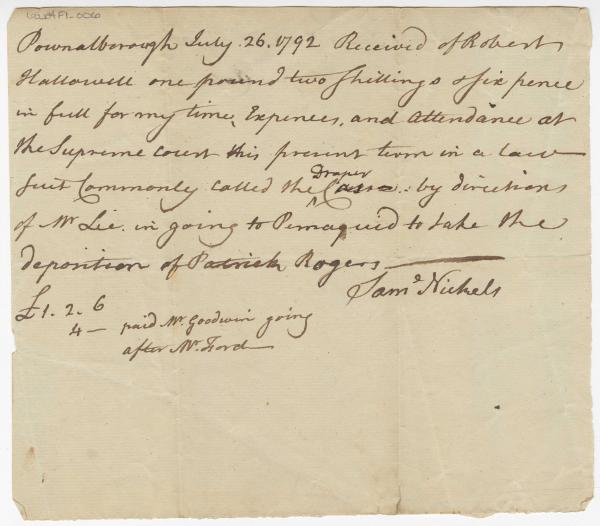 Pownalborough July. 26. 1792 Received of Robert
Hallowell one pound two Shillings & six pence
in full for my time, Expences, and Attendance at
the Supreme court this present term in a law
suit Commonly called the ^ Draper Case. by directions
of Mr Lee. in going to Pemaquid to take the
deposition of Patrick Rogers
Saml Nickels
£1. 2. 6
4 — paid Mr. Goodwin going
after Mr. Ford